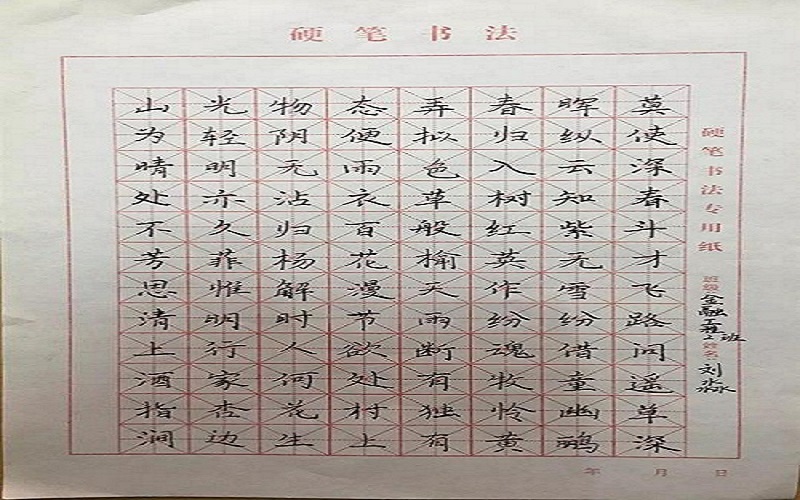 硬笔书法
山光物态弄春晖莫
为轻阴便拟归纵使
晴明无雨色入云深
处亦沾衣草树知春
不久归百般红紫斗
芳菲杨花榆英无才
思惟解漫天作雪飞
清明时节雨纷纷路
上行人欲断魂借问
酒家何处有牧童遥
指杏花村独怜幽草
涧边生上有黄鹂深
硬笔书法专用纸
班级 金融工程2班 姓名 刘淼
年 月 日